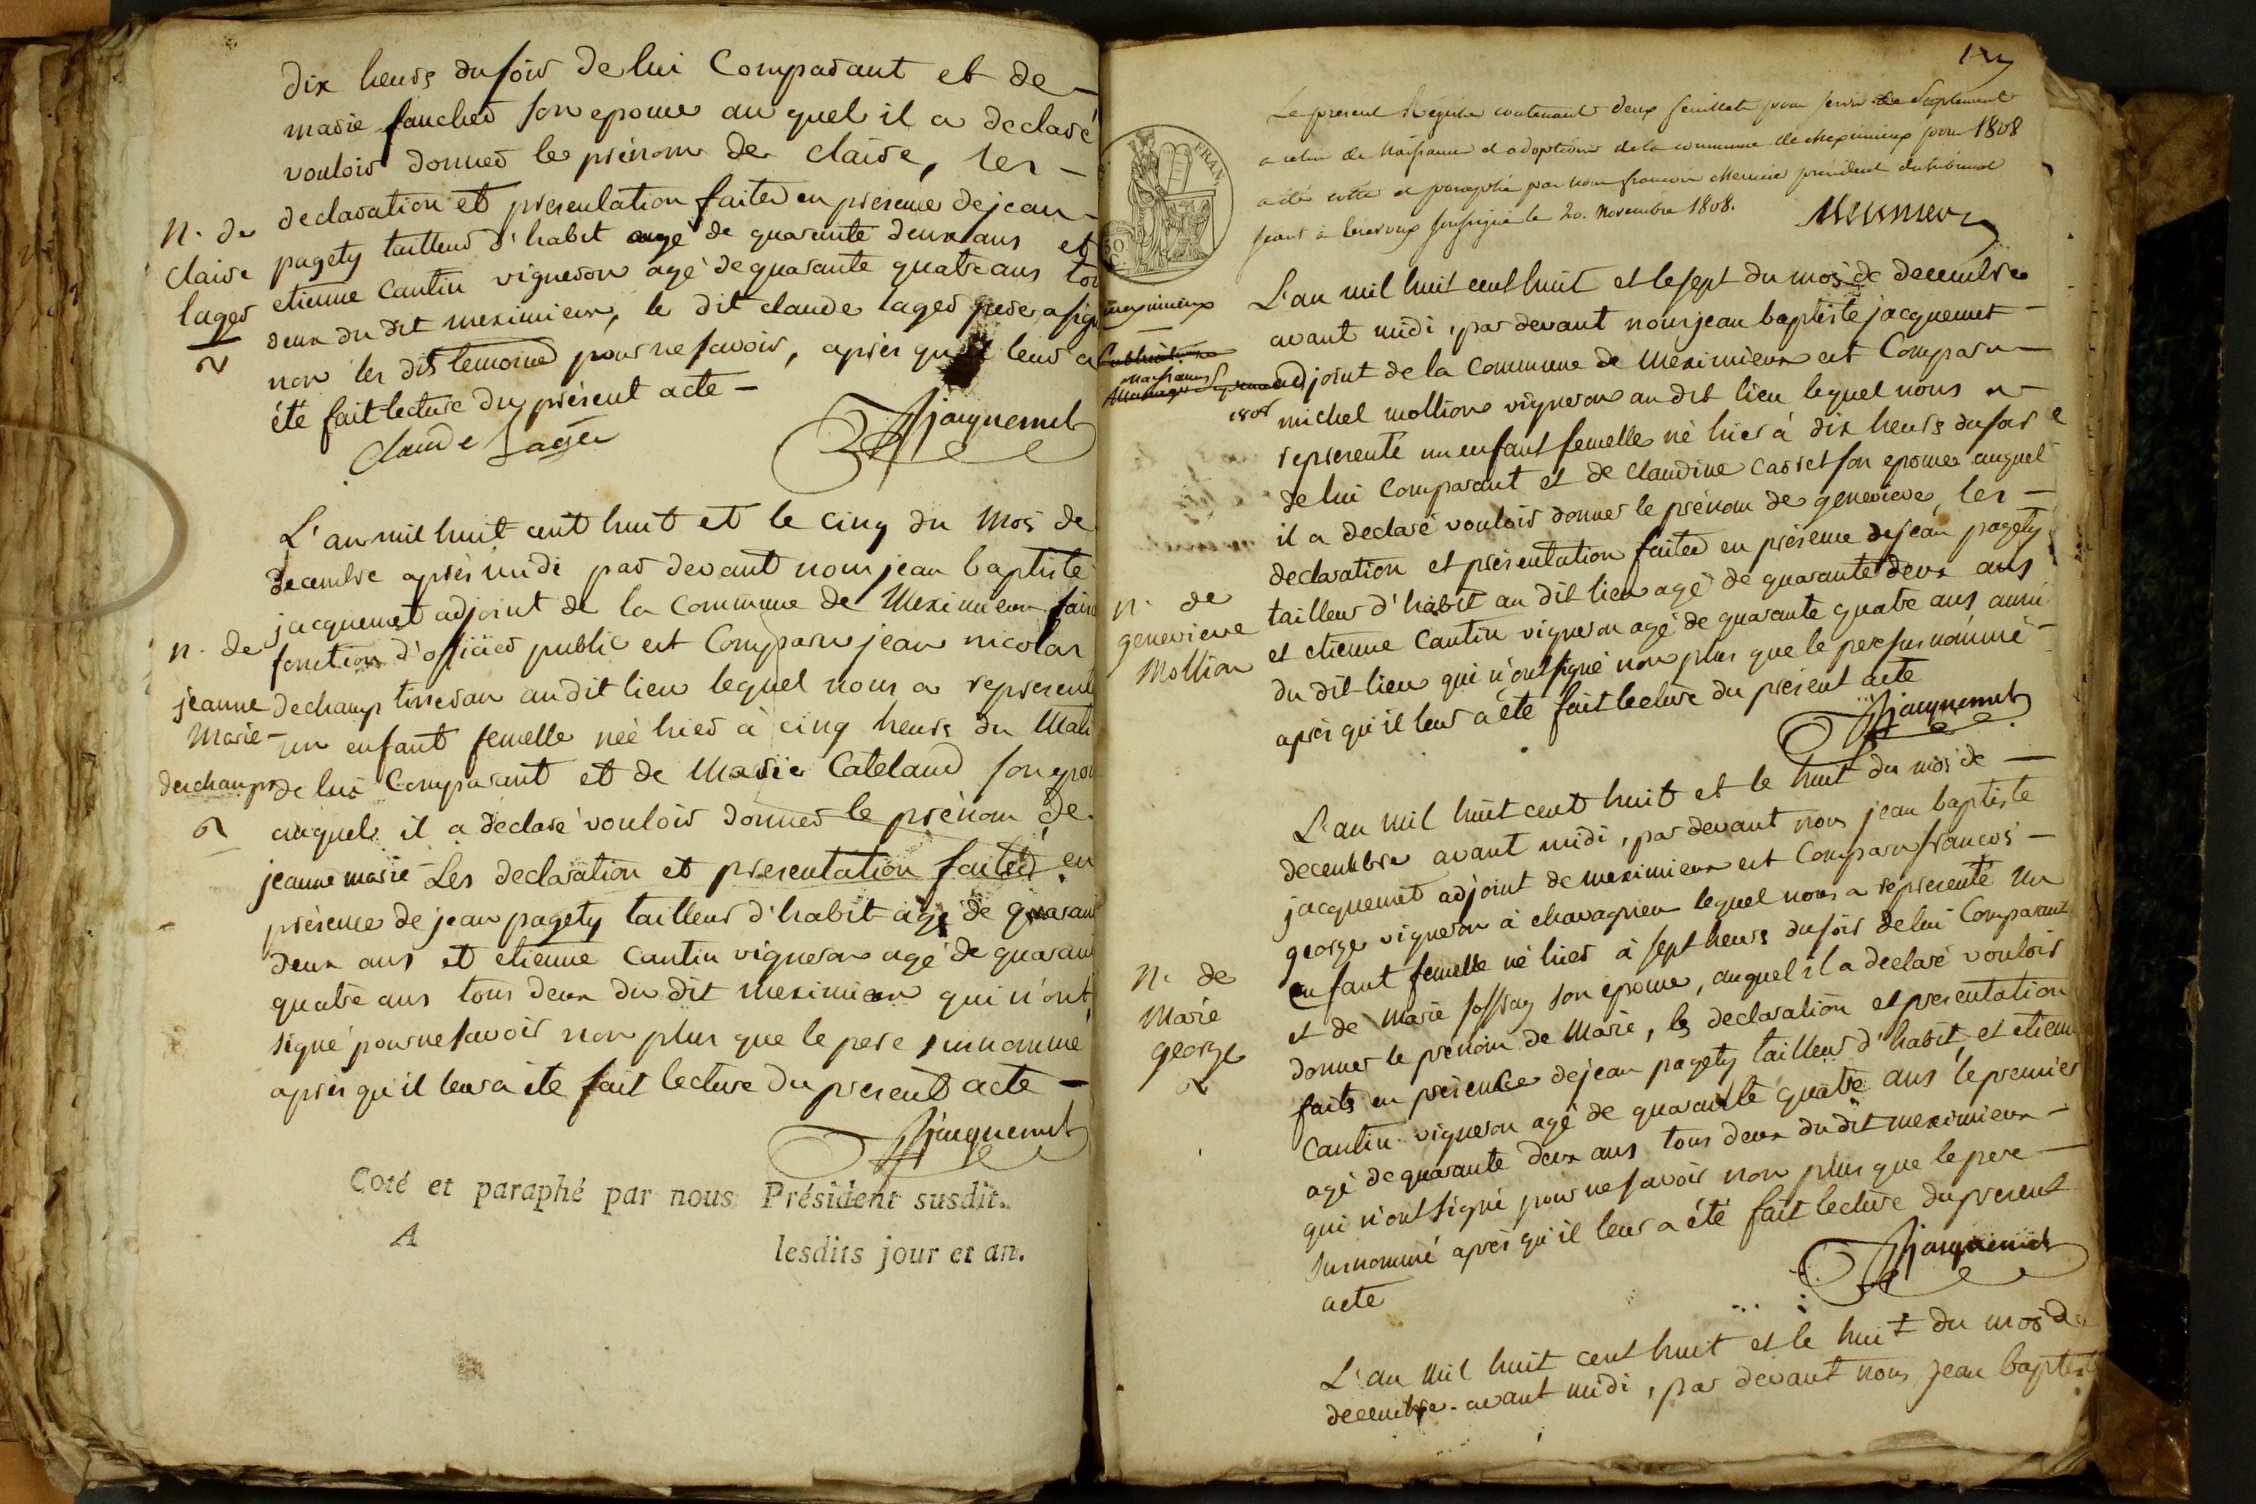 dix heurs du soir de lui Comparant et de –
marie faucher son epouse au quel il a declaré
vouloir donner le prénom de claire, les –
declaration et presentation faites en presence de jean –
N. de
claire
lager
pagety tailleur d'habit agé de quarante deux ans et
etienne cantin vigneron agé de quarante quatre ans tou
deux du dit meximieux, le dit claude lager pere a sig
non les dits temoins pour ne savoir, après qu'il leur a
été fait lecture du présent acte –
Claude Lager
jacquemet
L'an mil huit cent huit et le cinq du mois de
decembre après midi par devant nous jean baptiste
jacquemet adjoint de la commune de Meximieux fais
fonction d'officier public est Comparu jean nicolas
n. de
jeanne
Marie –
deschamps
dechamp tisseran au dit lieu lequel nous a represent
un enfant femelle née hier à cinq heurs du Mati
de lui Comparant et de Marie Cateland son epou
auquel il a déclaré vouloir donner le prénom de
jeanne marie Les declaration et presentation faites en
présence de jean pagety tailleur d'habit agé de quaran
deux ans et etienne cantin vigneron agé de quaran
quatre ans tous deux du dit meximieux qui n'ont
signé pour ne savoir non plus que le pere surnommé
après qu'il leur a ete fait lecture du present acte –
jacquemet
Coté et paraphé par nous Président susdit.
A
lesdits jour et an.
Le present Registre contenant deux feuillets pour servir de Suplement
a celui de Naissance et adoptions de la commune de Meximieux pour 1808
a été cotté et paraphé par nous françois Mernier président du tribunal
seant à soussigné le 20. Novembre 1808.
FRAN
meximieux
Naissances
1808
L'an mil huit cent huit et le sept du mois de decembre
avant midi, par devant nous jean baptiste jacquemet –
adjoint de la commune de Meximieux est Comparu –
michel mollion vigneron au dit lieu lequel nous a
representé un enfant femelle né hier à dix heurs du soir
de lui Comparant et de claudine carret son epouse auquel
il a declaré vouloir donner le prénom de genevieve, les –
declaration et présentation faites en présence de jean pagety
n. de
genevieve
Mollion
tailleur d'habit au dit lieu agé de quarante deux ans
et etienne Cantin vigneron agé de quarante quatre ans aussi
du dit lieu qui n'ont signé non plus que le pere surnommé –
après qu'il leur a été fait lecture du présent acte
jacquemet
L'an mil huit cent huit et le huit du mois de –
decembre avant midi, par devant nous jean baptiste
jacquemet adjoint de meximieux est Comparu francois –
george vigneron à chavagnieu lequel nous a representé un
enfant femelle né hier à sept heurs du soir de lui Comparant
N. de
Marie
george
et de marie son epouse, auquel il a declaré vouloir
donner le prénom de Marie, les declaration et presentation
faits en présence de jean pagety tailleur d'habit, et etienne
Cantin vigneron agé de quarante quatre ans le premier
agé de quarante deux ans tous deux du dit meximieux –
qui n'ont signé pour ne savoir non plus que le pere –
surnommé après qu'il leur a été fait lecture du present
acte
jacquemet
L'an mil huit cent huit et le huit du mois de
decembre avant midi, par devant nous jean baptist